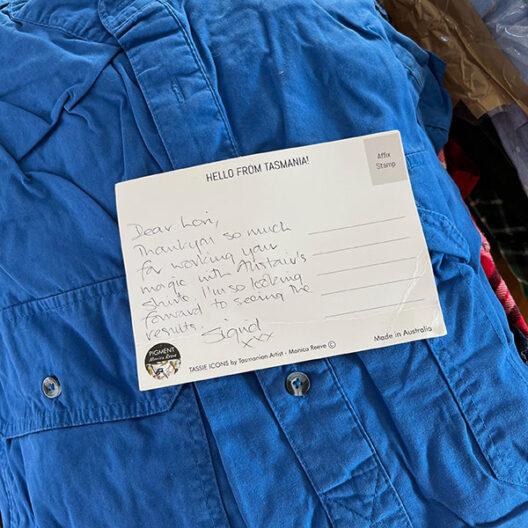 HELLO FROM TASMANIA!
Affix
Stamp
Dear Lori,
Thankyou so much
for working your
magic with Alistair's
shirts. I'm so looking
forward to seeing the
results. Sigrid
xxx
PIGMENT
Monica Reeve
TASSIE ICONS by Tasmanian Artist - Monica Reeve ©
Made in Australia